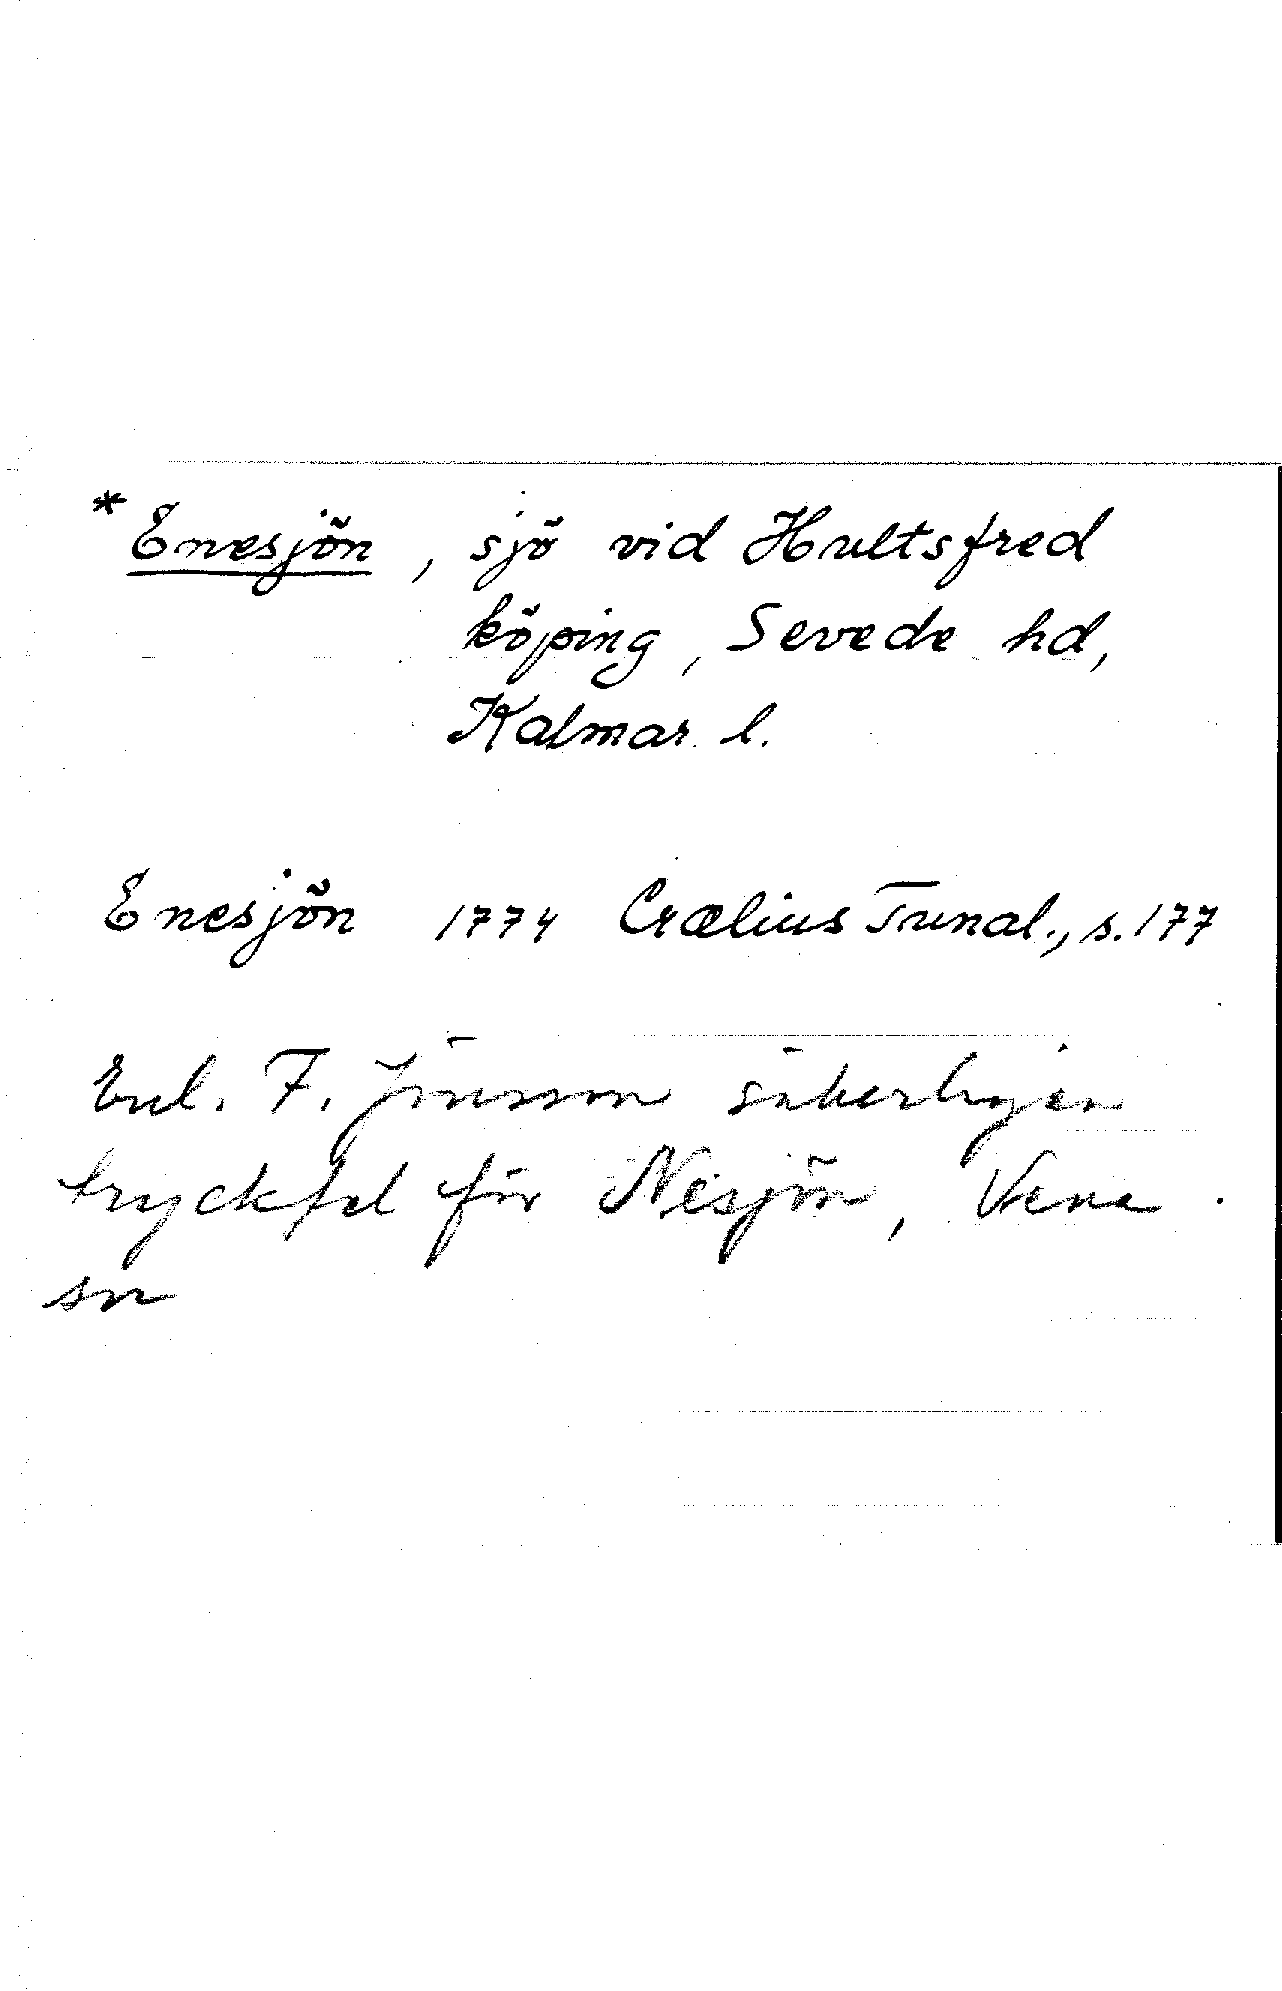 * Enesjön, sjö vid Hultsfred
köping, Sevede hd,
Kalmar l.
Enesjön 1774 Crælius Tunal., s. 177
Enl. F. Jönsson säkerligen
tryckfel för Nesjön, Vena
sn